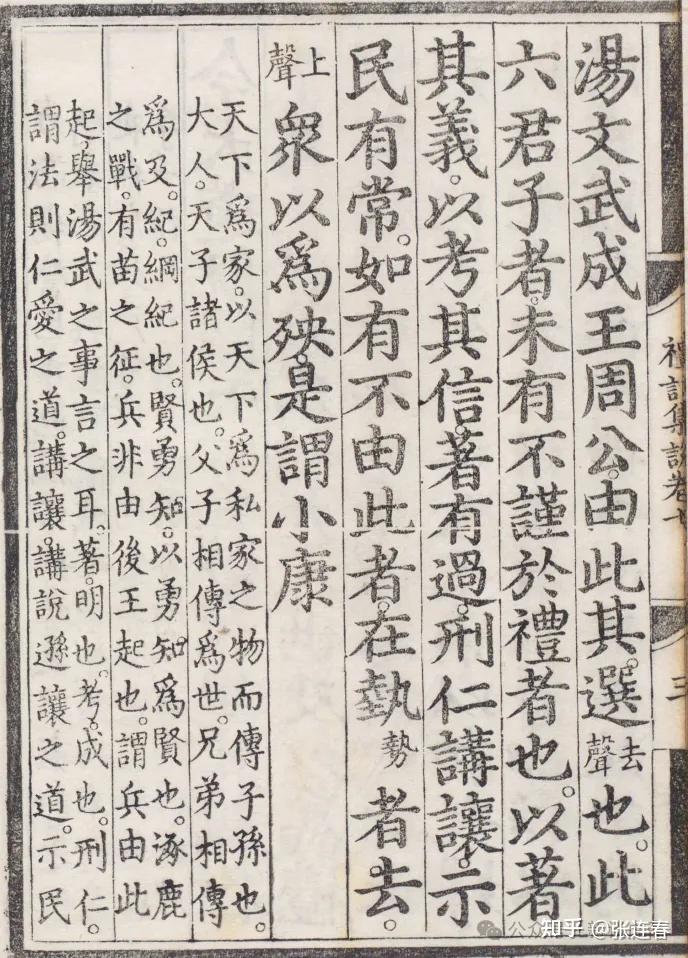 禮記集說卷七 三
湯文武成王周公。由此其選。去聲也。此
六君子者。未有不謹於禮者也。以著
其義。以考其信。著有過。刑仁講讓。示
民有常。如有不由此者。在埶勢者去。
上聲衆以爲殃。是謂小康
天下爲家。以天下爲私家之物而傳子孫也。
大人。天子諸侯也。父子相傳爲世。兄弟相傳
爲及。紀。綱紀也。賢勇知。以勇知爲賢也。涿鹿
之戰。有苗之征。兵非由後王起也。謂兵由此
起。舉湯武之事言之耳。著。明也。考。成也。刑仁。
謂法則仁愛之道。講讓。講說遜讓之道。示民
知乎 @张连春